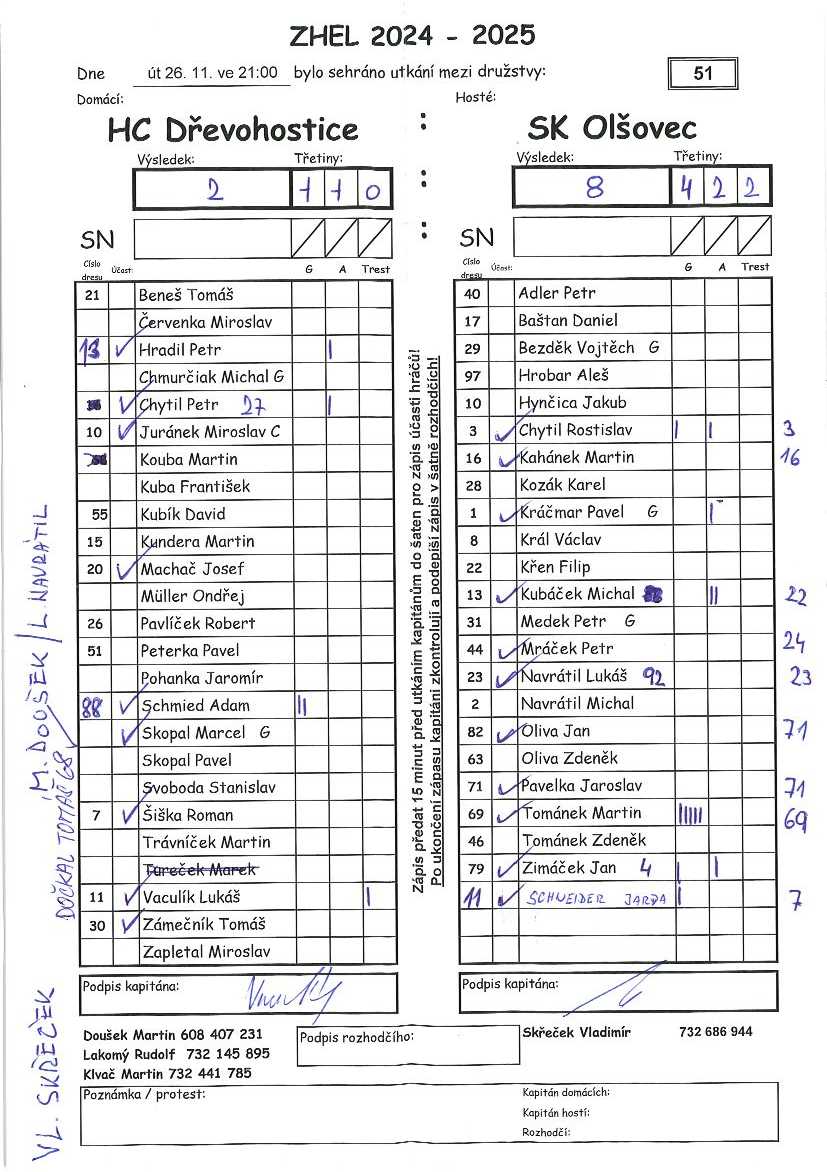 ZHEL 2024 - 2025
Dne út 26. 11. ve 21:00 bylo sehráno utkání mezi družstvy: 51
Domácí: Hosté:
HC Dřevohostice : SK Olšovec
Výsledek: Třetiny: Výsledek: Třetiny:
2 1 1 0 : 8 4 2 2
SN : SN
Číslo dresu Účast: G A Trest
21 Beneš Tomáš
Červenka Miroslav
13 ✓ Hradil Petr |
Chmurčiak Michal G
✓ Chytil Petr 27 |
10 ✓ Juránek Miroslav C
Kouba Martin
Kuba František
55 Kubík David
15 Kundera Martin
20 ✓ Machač Josef
Müller Ondřej
26 Pavlíček Robert
51 Peterka Pavel
Pohanka Jaromír
88 ✓ Schmied Adam ||
✓ Skopal Marcel G
Skopal Pavel
Svoboda Stanislav
7 ✓ Šiška Roman
Trávníček Martin
Tureček Marek
11 ✓ Vaculík Lukáš |
30 ✓ Zámečník Tomáš
Zapletal Miroslav
Zápis předat 15 minut před utkáním kapitánům do šaten pro zápis účasti hráčů!
Po ukončení zápasu kapitáni zkontrolují a podepíší zápis v šatně rozhodčích!
Číslo dresu Účast: G A Trest
40 Adler Petr
17 Baštan Daniel
29 Bezděk Vojtěch G
97 Hrobar Aleš
10 Hynčica Jakub
3 ✓ Chytil Rostislav | | 3
16 ✓ Kahánek Martin 16
28 Kozák Karel
1 ✓ Kráčmar Pavel G |
8 Král Václav
22 Křen Filip
13 ✓ Kubáček Michal || 22
31 Medek Petr G
44 ✓ Mráček Petr 24
23 ✓ Navrátil Lukáš 92 23
2 Navrátil Michal
82 ✓ Oliva Jan 71
63 Oliva Zdeněk
71 ✓ Pavelka Jaroslav 71
69 ✓ Tománek Martin ||||| 69
46 Tománek Zdeněk
79 ✓ Zimáček Jan 4 | |
11 ✓ SCHNEIDER JARDA | 7
M. DOUŠEK / L. NAVRÁTIL
DOČKAL TOMÁŠ 68 ✓
VL. SKŘEČEK
Podpis kapitána: Podpis kapitána:
Doušek Martin 608 407 231
Lakomý Rudolf 732 145 895
Klvač Martin 732 441 785
Podpis rozhodčího:
Skřeček Vladimír 732 686 944
Poznámka / protest:
Kapitán domácích:
Kapitán hostí:
Rozhodčí: